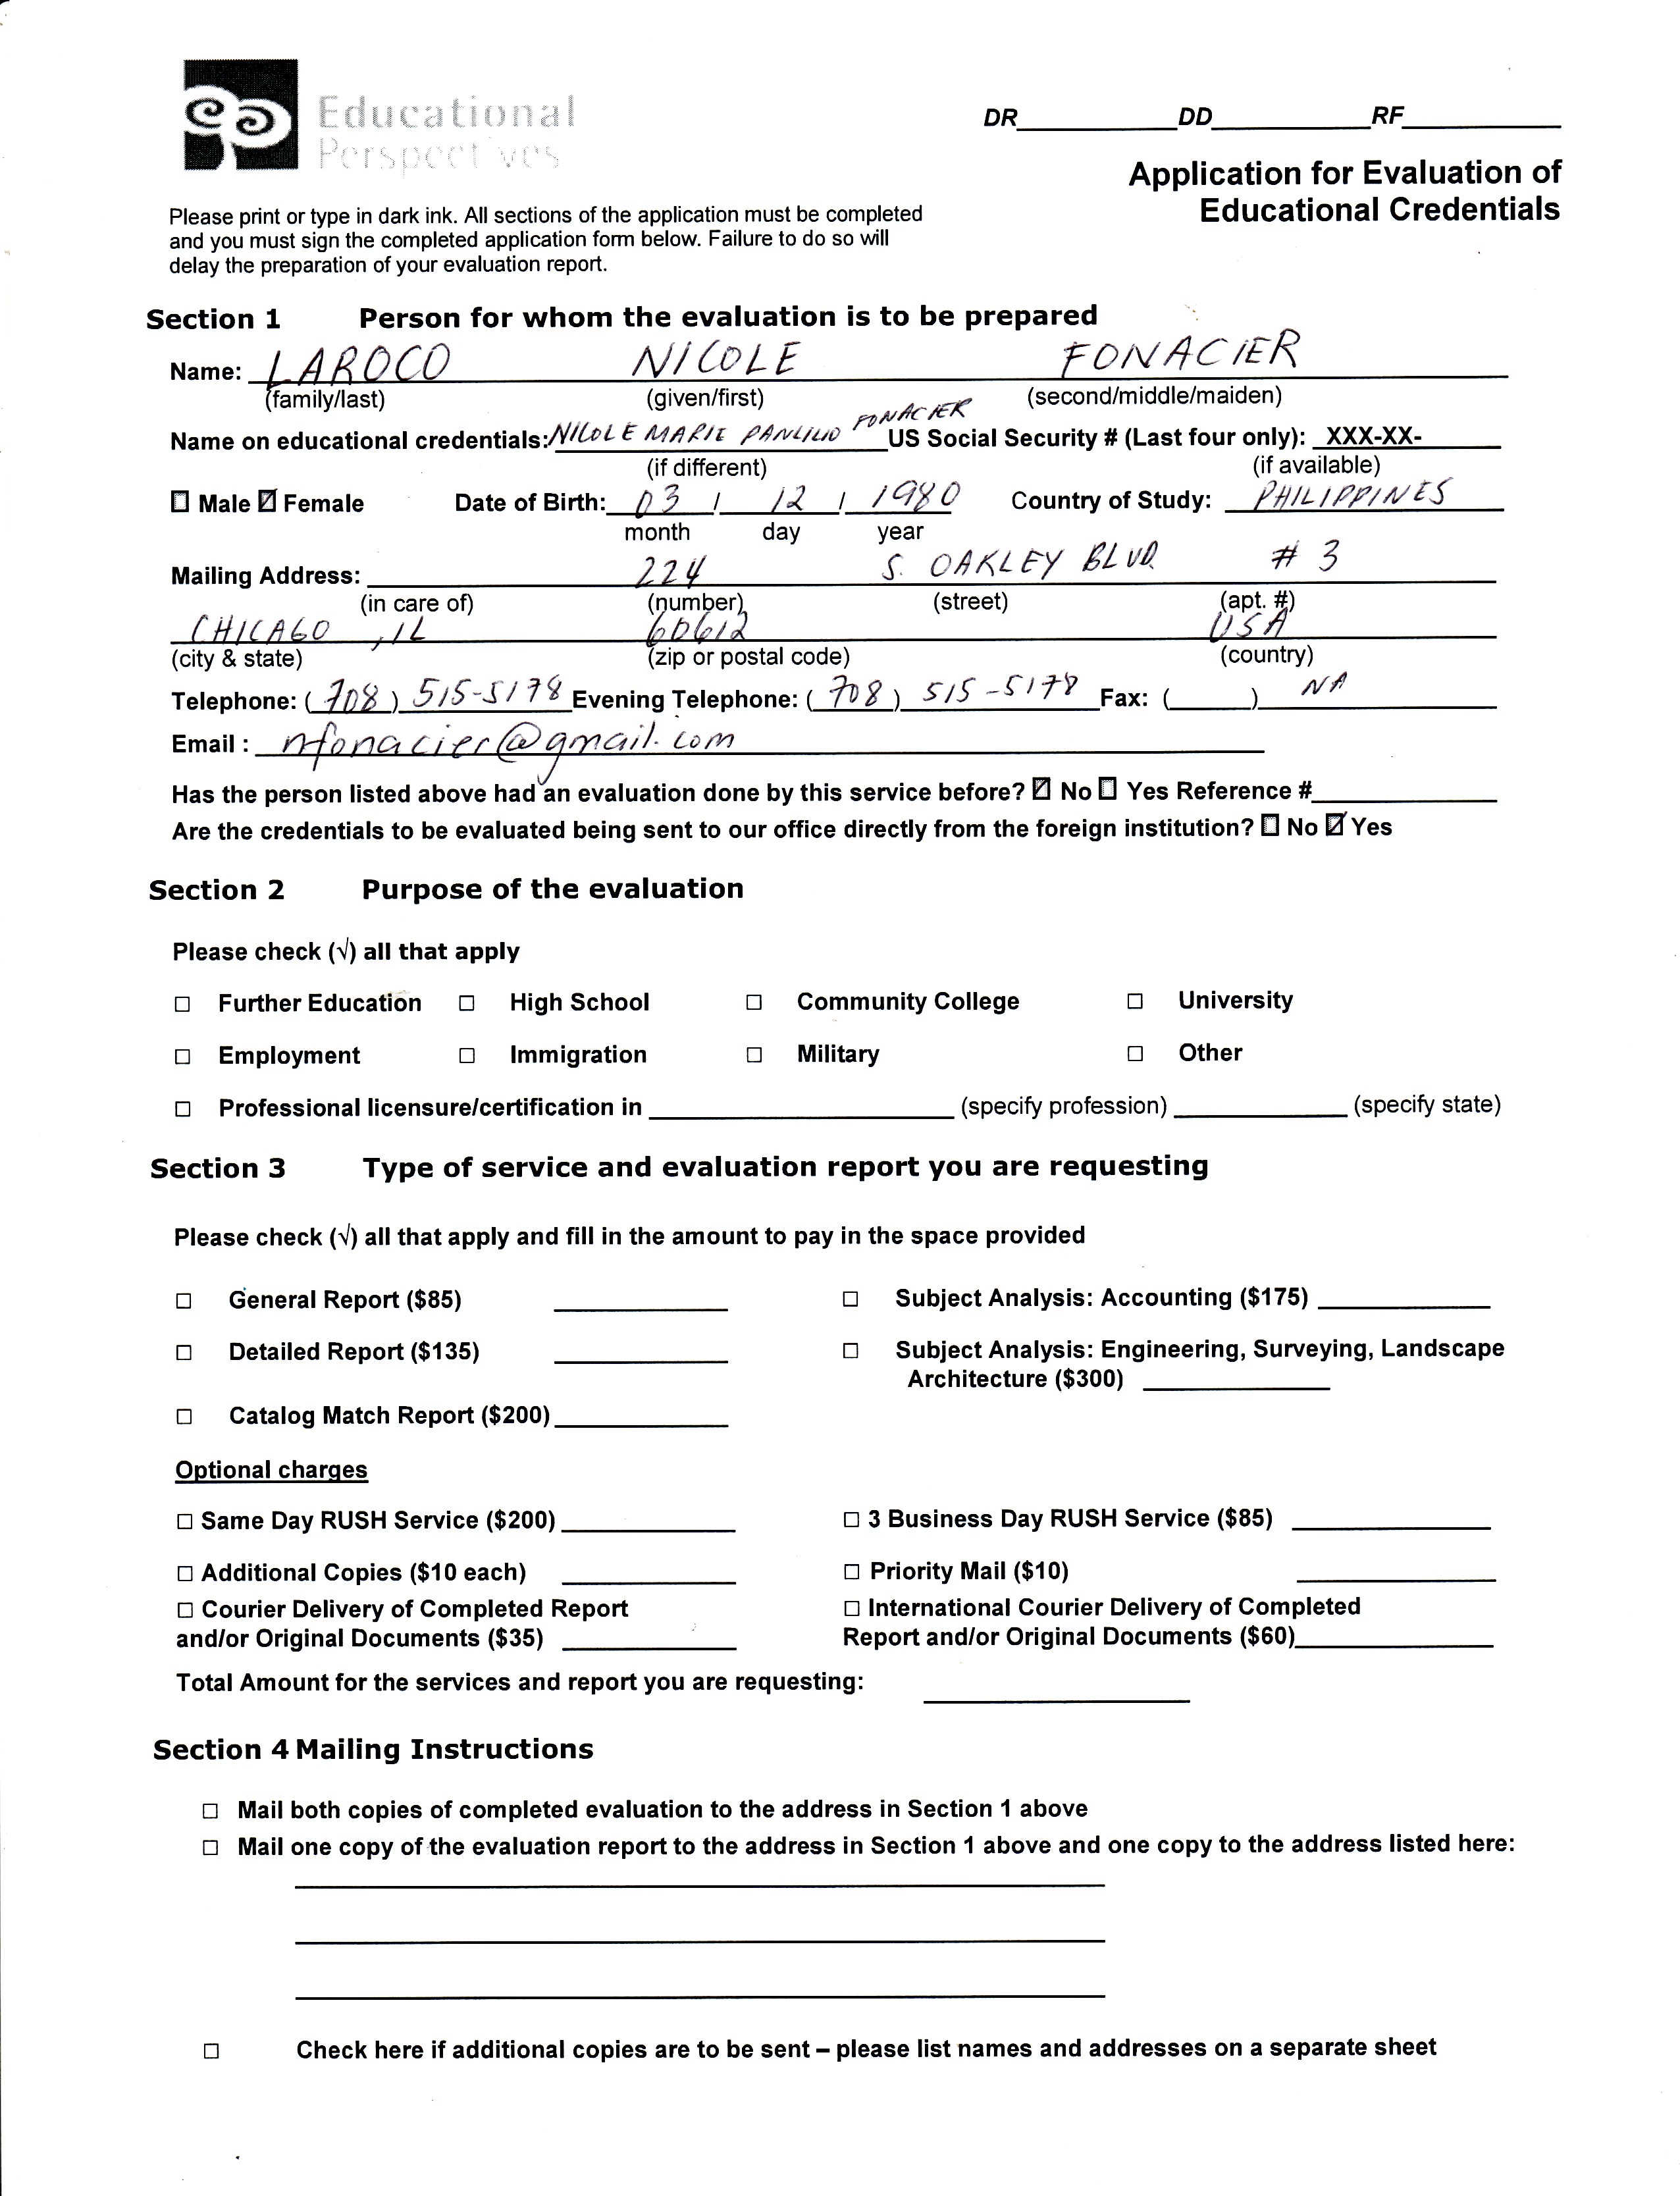 Educational
Perspectives
DR__________ DD__________ RF__________
Application for Evaluation of
Educational Credentials
Please print or type in dark ink. All sections of the application must be completed
and you must sign the completed application form below. Failure to do so will
delay the preparation of your evaluation report.
Section 1 Person for whom the evaluation is to be prepared
Name: LAROCO NICOLE FONACIER
(family/last) (given/first) (second/middle/maiden)
Name on educational credentials: NICOLE MARIE PANLILIO FONACIER US Social Security # (Last four only): XXX-XX-
(if different) (if available)
☐ Male ☑ Female Date of Birth: 03 / 12 / 1980 Country of Study: PHILIPPINES
month day year
Mailing Address: 224 S. OAKLEY BLVD. # 3
(in care of) (number) (street) (apt. #)
CHICAGO , IL 60612 USA
(city & state) (zip or postal code) (country)
Telephone: (708) 515-5178 Evening Telephone: (708) 515-5178 Fax: (______) NA
Email : nfonacier@gmail.com
Has the person listed above had an evaluation done by this service before? ☑ No ☐ Yes Reference #__________
Are the credentials to be evaluated being sent to our office directly from the foreign institution? ☐ No ☑ Yes
Section 2 Purpose of the evaluation
Please check (√) all that apply
☐ Further Education ☐ High School ☐ Community College ☐ University
☐ Employment ☐ Immigration ☐ Military ☐ Other
☐ Professional licensure/certification in __________ (specify profession) __________ (specify state)
Section 3 Type of service and evaluation report you are requesting
Please check (√) all that apply and fill in the amount to pay in the space provided
☐ General Report ($85) __________ ☐ Subject Analysis: Accounting ($175) __________
☐ Detailed Report ($135) __________ ☐ Subject Analysis: Engineering, Surveying, Landscape
Architecture ($300) __________
☐ Catalog Match Report ($200) __________
Optional charges
☐ Same Day RUSH Service ($200) __________ ☐ 3 Business Day RUSH Service ($85) __________
☐ Additional Copies ($10 each) __________ ☐ Priority Mail ($10) __________
☐ Courier Delivery of Completed Report ☐ International Courier Delivery of Completed
and/or Original Documents ($35) __________ Report and/or Original Documents ($60)__________
Total Amount for the services and report you are requesting: __________
Section 4 Mailing Instructions
☐ Mail both copies of completed evaluation to the address in Section 1 above
☐ Mail one copy of the evaluation report to the address in Section 1 above and one copy to the address listed here:
☐ Check here if additional copies are to be sent – please list names and addresses on a separate sheet